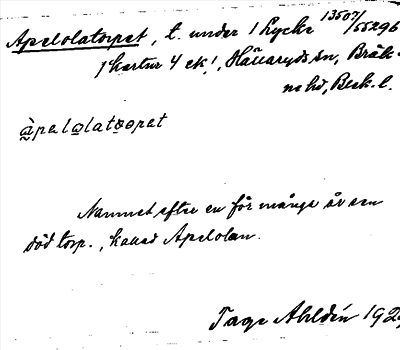 Apelolatorpet, t. under 1 Lycke 13507/55296
1 kartur 4 ek!, Hällaryds sn, Bräk-
ne hd, Blek. l.
àpelolatorpet
Namnet efter en för många år sen
död torp., kallad Apelolan.
Tage Ahldén 192